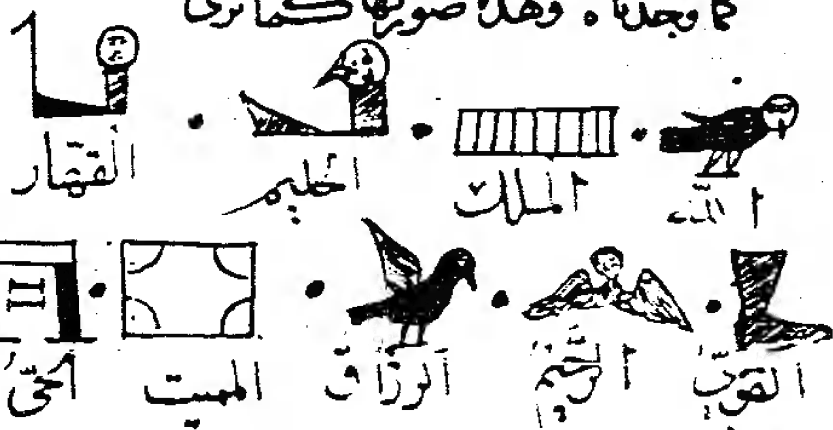 كما وجدناه وهذه صورتها كما ترى
الله الملك الحليم القهار
القوي الرحيم الرزاق المميت الحي